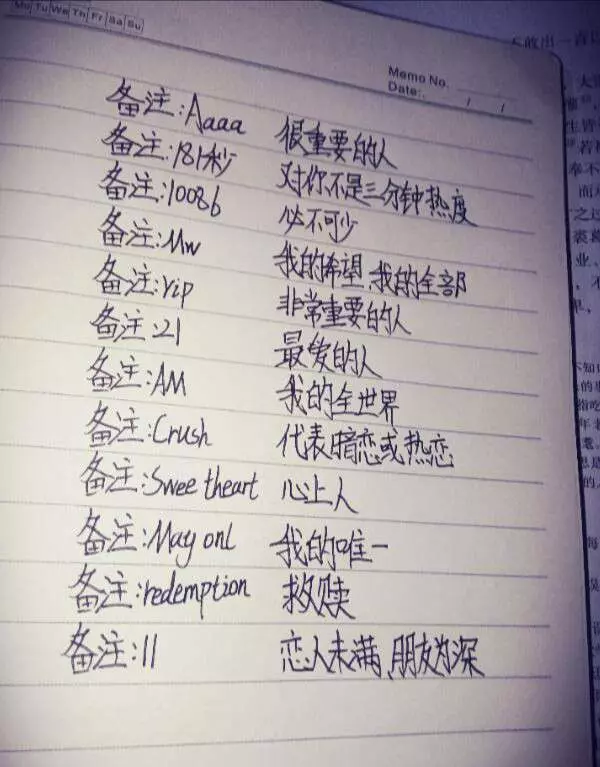 Mo Tu We Th Fr Sa Su
Memo No.
Date: / /
备注:Aaaa 很重要的人
备注:181秒 对你不是三分钟热度
备注:10086 必不可少
备注:Mw 我的希望,我的全部
备注:vip 非常重要的人
备注:21 最爱的人
备注:AM 我的全世界
备注:Crush 代表暗恋或热恋
备注:Sweetheart 心上人
备注:May onl 我的唯一
备注:redemption 救赎
备注:11 恋人未满,朋友为深
不敢出一言以